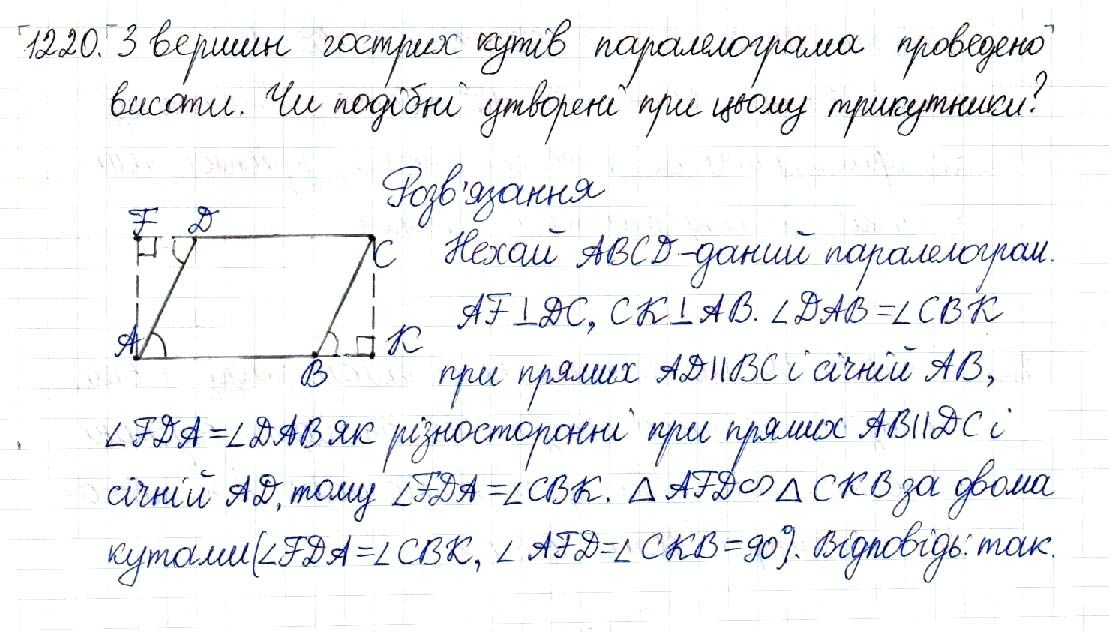 1220. З вершин гострих кутів паралелограма проведено
висоти. Чи подібні утворені при цьому трикутники?
Розв'язання
F D
C
A
B
K
Нехай ABCD-даний паралелограм.
AF⊥DC, CK⊥AB. ∠DAB=∠CBK
при прямих AD||BC і січній AB,
∠FDA=∠DAB як різносторонні при прямих AB||DC і
січній AD, тому ∠FDA=∠CBK. △AFD∽△CKB за двома
кутами(∠FDA=∠CBK, ∠AFD=∠CKB=90°). Відповідь: так.